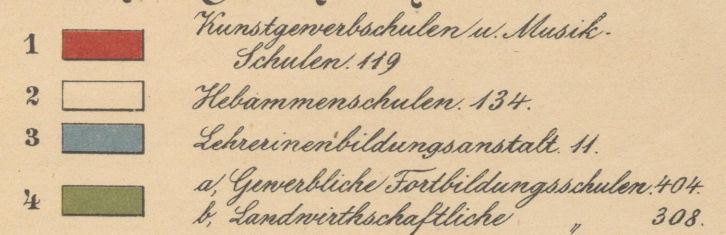 1 Kunstgewerbschulen u. Musik-
Schulen. 119
2 Hebammenschulen. 134.
3 Lehrerinenbildungsanstalt. 11.
4 a, Gewerbliche Fortbildungsschulen. 404.
b, Landwirthschaftliche " 308.